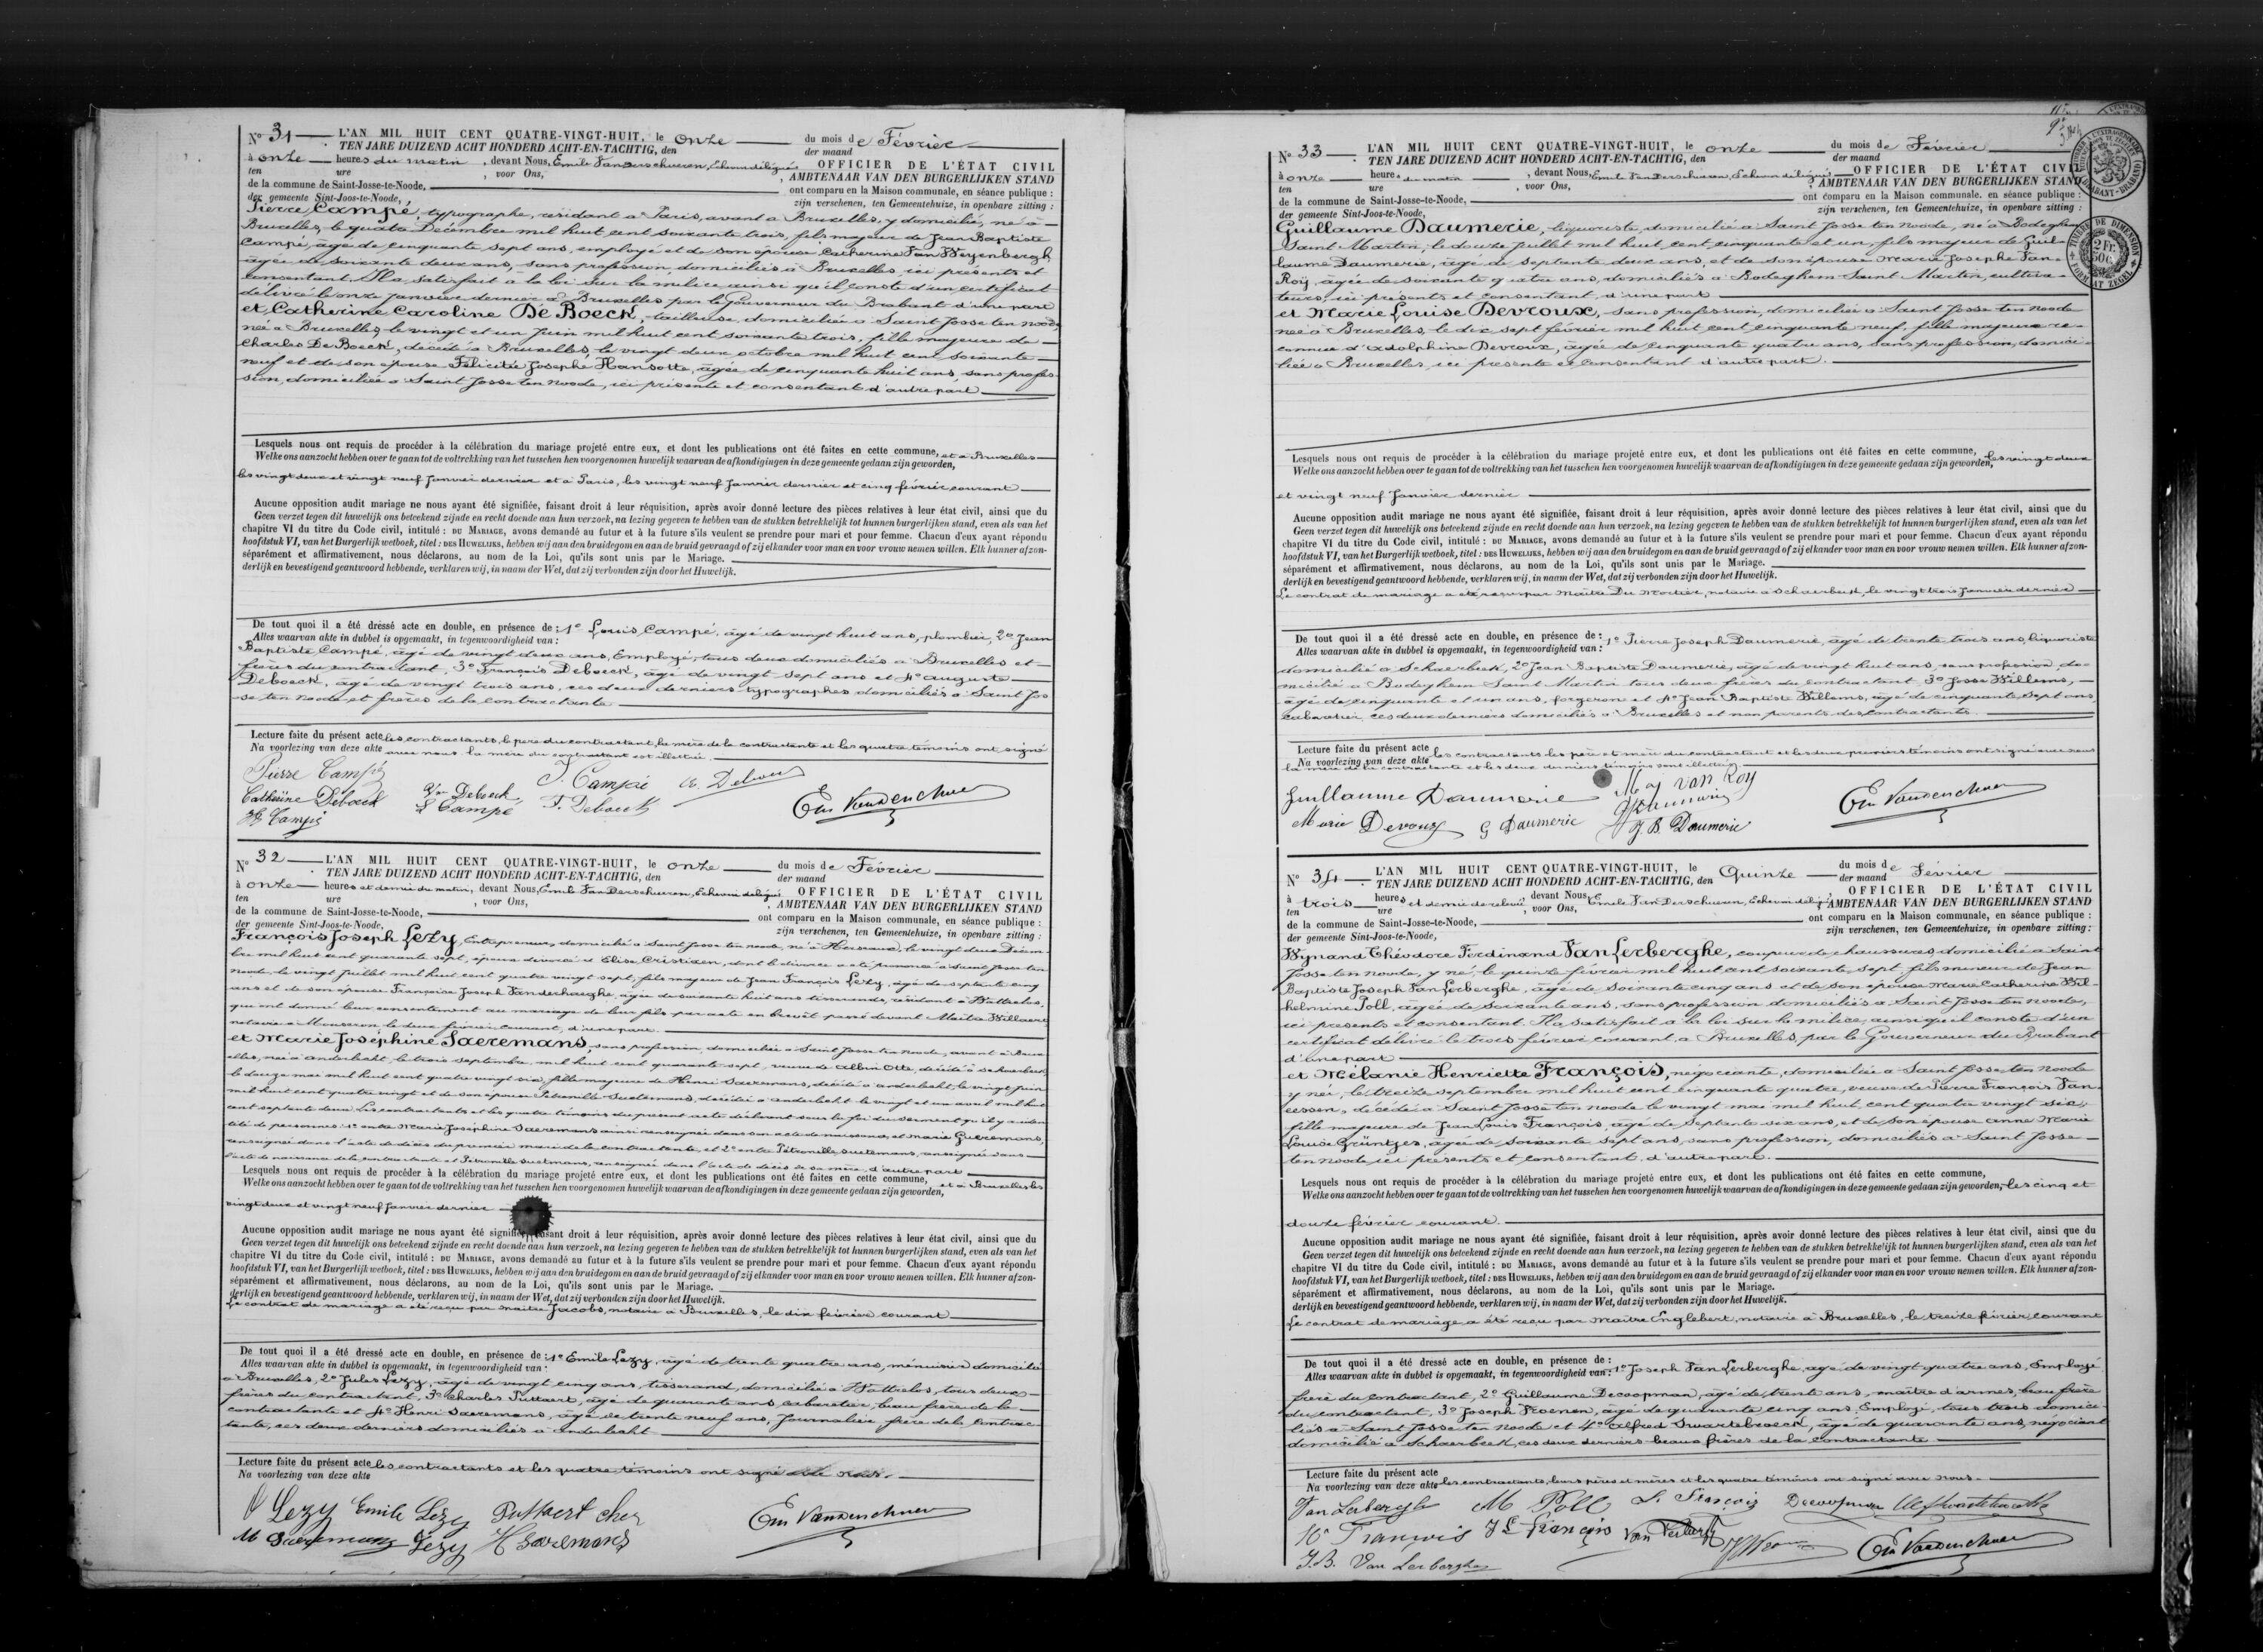 Nº 31 L'AN MIL HUIT CENT QUATRE-VINGT-HUIT, le onze du mois de Février
TEN JARE DUIZEND ACHT HONDERD ACHT-EN-TACHTIG, den der maand
à onze heures du matin, devant Nous, Emile Vanderschueren, Echevin délégué OFFICIER DE L'ÉTAT CIVIL
ten ure , voor Ons, , AMBTENAAR VAN DEN BURGERLIJKEN STAND
de la commune de Saint-Josse-te-Noode, ont comparu en la Maison communale, en séance publique :
der gemeente Sint-Joos-te-Noode, zijn verschenen, ten Gemeentehuize, in openbare zitting :
Pierre Campé, typographe, résidant à Paris, avant à Bruxelles, y domicilié, né à
Bruxelles, le quatre Décembre mil huit cent soixante trois, fils majeur de Jean Baptiste
Campé, âgé de cinquante sept ans, employé et de son épouse Catherine Van Weyenbergh
âgée de soixante deux ans, sans profession, domiciliés à Bruxelles ici présents et
consentant. Il a satisfait à la loi sur la milice ainsi qu'il conste d'un certificat
délivré le onze Janvier dernier à Bruxelles par le Gouverneur du Brabant d'une part
et Catherine Caroline De Boeck, tailleuse, domiciliée à Saint Josse ten noode
née à Bruxelles, le vingt et un Juin mil huit cent soixante trois, fille majeure de
Charles De Boeck, décédé à Bruxelles, le vingt deux octobre mil huit cent soixante
neuf et de son épouse Félicité Josephe Hansotte, âgée de cinquante huit ans sans profes-
sion, domiciliée à Saint Josse ten Noode, ici présente et consentant d'autre part
Lesquels nous ont requis de procéder à la célébration du mariage projeté entre eux, et dont les publications ont été faites en cette commune, et à Bruxelles
Welke ons aanzocht hebben over te gaan tot de voltrekking van het tusschen hen voorgenomen huwelijk waarvan de afkondigingen in deze gemeente gedaan zijn geworden,
les vingt deux et vingt neuf Janvier dernier et à Paris, les vingt neuf Janvier dernier et cinq février courant
Aucune opposition audit mariage ne nous ayant été signifiée, faisant droit á leur réquisition, après avoir donné lecture des pièces relatives à leur état civil, ainsi que du
Geen verzet tegen dit huwelijk ons beteekend zijnde en recht doende aan hun verzoek, na lezing gegeven te hebben van de stukken betrekkelijk tot hunnen burgerlijken stand, even als van het
chapitre VI du titre du Code civil, intitulé : DU MARIAGE, avons demandé au futur et à la future s'ils veulent se prendre pour mari et pour femme. Chacun d'eux ayant répondu
hoofdstuk VI, van het Burgerlijk wetboek, titel : DES HUWELIJKS, hebben wij aan den bruidegom en aan de bruid gevraagd of zij elkander voor man en voor vrouw nemen willen. Elk hunner afzon-
séparément et affirmativement, nous déclarons, au nom de la Loi, qu'ils sont unis par le Mariage.
derlijk en bevestigend geantwoord hebbende, verklaren wij, in naam der Wet, dat zij verbonden zijn door het Huwelijk.
De tout quoi il a été dressé acte en double, en présence de : 1º Louis Campé, âgé de vingt huit ans, plombier, 2º Jean
Alles waarvan akte in dubbel is opgemaakt, in tegenwoordigheid van :
Baptiste Campé, âgé de vingt deux ans, Employé, tous deux domiciliés à Bruxelles et
frères du contractant, 3º François Deboeck, âgé de vingt sept ans et 4º Auguste
Deboeck, âgé de vingt trois ans, ces deux derniers typographes domiciliés à Saint Jos-
se ten noode et frères de la contractante
Lecture faite du présent acte les contractants, le père du contractant, la mère de la contractante et les quatre témoins ont signé
Na voorlezing van deze akte avec nous. la mère du contractant est illettrée.
Pierre Campé
J. Campé
Catherine Deboeck
L Campé F. Deboeck
Em Vanderschueren
Nº 32 L'AN MIL HUIT CENT QUATRE-VINGT-HUIT, le onze du mois de Février
TEN JARE DUIZEND ACHT HONDERD ACHT-EN-TACHTIG, den der maand
à onze heures et demie du matin, devant Nous, Emile Vanderschueren, Echevin délégué OFFICIER DE L'ÉTAT CIVIL
ten ure , voor Ons, , AMBTENAAR VAN DEN BURGERLIJKEN STAND
de la commune de Saint-Josse-te-Noode, ont comparu en la Maison communale, en séance publique :
der gemeente Sint-Joos-te-Noode, zijn verschenen, ten Gemeentehuize, in openbare zitting :
François Joseph Lezy, Entrepreneur, domicilié à Saint Josse ten noode, né à Herseaux, le vingt deux Décem-
bre mil huit cent quarante sept, époux divorcé d'Elise Cristiaen, dont le divorce a été prononcé à Saint Josse ten
noode le vingt Juillet mil huit cent quatre vingt sept, fils majeur de Jean François Lezy, âgé de septante cinq
ans et de son épouse Françoise Joseph Vanderhaeghe, âgée de soixante huit ans tisserands, résidant à Wattrelos,
qui ont donné leur consentement au mariage de leur fils par acte en brevêt passé devant Maître Willaert
notaire à Mouscron le deux février courant, d'une part.
et Marie Joséphine Saeremans, sans profession, domiciliée à Saint Josse ten noode, avant à Brux-
elles, née à Anderlecht, le trois septembre mil huit cent quarante sept, veuve de Albin Otte, décédé à Schaerbeek
le douze mai mil huit cent quatre vingt six, fille majeure de Henri Saeremans, décédé à Anderlecht, le vingt juin
mil huit cent quatre vingt et de son épouse Pétronille Suetemans, décédée à Anderlecht le vingt et un avril mil huit
cent septante deux. Les contractants et les quatre témoins du présent acte déclarent sous la foi du serment qu'il y a iden-
tité de personnes: 1º entre Marie Joséphine Saeremans ainsi renseignée dans son acte de naissance, et Marie Gueremans,
renseignée dans l'acte de décès du premier mari de la contractante, et 2º entre Pétronelle Suetemans, renseignée dans
l'acte de naissance de la contractante et Pétronille Suetmans, renseignée dans l'acte de décès de sa mère, d'autre part
Lesquels nous ont requis de procéder à la célébration du mariage projeté entre eux, et dont les publications ont été faites en cette commune, et à Bruxelles les
Welke ons aanzocht hebben over te gaan tot de voltrekking van het tusschen hen voorgenomen huwelijk waarvan de afkondigingen in deze gemeente gedaan zijn geworden,
vingt deux et vingt neuf Janvier dernier
Aucune opposition audit mariage ne nous ayant été signifiée, faisant droit á leur réquisition, après avoir donné lecture des pièces relatives à leur état civil, ainsi que du
Geen verzet tegen dit huwelijk ons beteekend zijnde en recht doende aan hun verzoek, na lezing gegeven te hebben van de stukken betrekkelijk tot hunnen burgerlijken stand, even als van het
chapitre VI du titre du Code civil, intitulé : DU MARIAGE, avons demandé au futur et à la future s'ils veulent se prendre pour mari et pour femme. Chacun d'eux ayant répondu
hoofdstuk VI, van het Burgerlijk wetboek, titel : DES HUWELIJKS, hebben wij aan den bruidegom en aan de bruid gevraagd of zij elkander voor man en voor vrouw nemen willen. Elk hunner afzon-
séparément et affirmativement, nous déclarons, au nom de la Loi, qu'ils sont unis par le Mariage.
derlijk en bevestigend geantwoord hebbende, verklaren wij, in naam der Wet, dat zij verbonden zijn door het Huwelijk.
Le contrat de mariage a été reçu par Maître Jacobs, notaire à Bruxelles, le dix février courant
De tout quoi il a été dressé acte en double, en présence de : 1º Emile Lezy, âgé de trente quatre ans, menuisier domicilié
Alles waarvan akte in dubbel is opgemaakt, in tegenwoordigheid van :
à Bruxelles, 2º Jules Lezy, âgé de vingt cinq ans, tisserand, domicilié à Wattrelos, tous deux
frères du contractant, 3º Charles Puttaert, âgé de quarante ans cabaretier, beau frère de la
contractante et 4º Henri Saeremans, âgé de trente neuf ans, Journalier, frère de la Contrac-
tante, ces deux derniers domiciliés à Anderlecht
Lecture faite du présent acte les contractants et les quatre témoins ont signé avec nous.
Na voorlezing van deze akte
Lezy Emile Lezy Puttaert Ches
M Saeremans Lezy H Saeremans
Em Vanderschueren
Nº 33 L'AN MIL HUIT CENT QUATRE-VINGT-HUIT, le onze du mois de Février
TEN JARE DUIZEND ACHT HONDERD ACHT-EN-TACHTIG, den der maand
à onze heures du matin, devant Nous, Emile Vanderschueren, Echevin délégué OFFICIER DE L'ÉTAT CIVIL
ten ure , voor Ons, , AMBTENAAR VAN DEN BURGERLIJKEN STAND
de la commune de Saint-Josse-te-Noode, ont comparu en la Maison communale, en séance publique :
der gemeente Sint-Joos-te-Noode, zijn verschenen, ten Gemeentehuize, in openbare zitting :
TIMBRE DE DIMENSION
2 Fr. 50 c.
FORMAAT ZEGEL
Guillaume Daumerie, liquoriste, domicilié à Saint Josse ten Noode, né à Bodeghem
Saint Martin, le douze Juillet mil huit cent cinquante et un, fils majeur de Guil-
laume Daumerie, âgé de septante deux ans, et de son épouse Marie Josephe Van
Roÿ, âgée de soixante quatre ans, domiciliés à Bodeghem Saint Martin, cultiva-
teurs, ici présents et consentant d'une part
et Marie Louise Devroux, sans profession, domiciliée à Saint Josse ten noode
née à Bruxelles, le dix sept février mil huit cent cinquante neuf, fille majeure re-
connue d'Adolphine Devroux, âgée de cinquante quatre ans, sans profession, domici-
liée à Bruxelles, ici présente et consentant d'autre part.
Lesquels nous ont requis de procéder à la célébration du mariage projeté entre eux, et dont les publications ont été faites en cette commune, les vingt deux
Welke ons aanzocht hebben over te gaan tot de voltrekking van het tusschen hen voorgenomen huwelijk waarvan de afkondigingen in deze gemeente gedaan zijn geworden,
et vingt neuf Janvier dernier
Aucune opposition audit mariage ne nous ayant été signifiée, faisant droit á leur réquisition, après avoir donné lecture des pièces relatives à leur état civil, ainsi que du
Geen verzet tegen dit huwelijk ons beteekend zijnde en recht doende aan hun verzoek, na lezing gegeven te hebben van de stukken betrekkelijk tot hunnen burgerlijken stand, even als van het
chapitre VI du titre du Code civil, intitulé : DU MARIAGE, avons demandé au futur et à la future s'ils veulent se prendre pour mari et pour femme. Chacun d'eux ayant répondu
hoofdstuk VI, van het Burgerlijk wetboek, titel : DES HUWELIJKS, hebben wij aan den bruidegom en aan de bruid gevraagd of zij elkander voor man en voor vrouw nemen willen. Elk hunner afzon-
séparément et affirmativement, nous déclarons, au nom de la Loi, qu'ils sont unis par le Mariage.
derlijk en bevestigend geantwoord hebbende, verklaren wij, in naam der Wet, dat zij verbonden zijn door het Huwelijk.
Le contrat de mariage a été reçu par Maître Du Mortier, notaire à Schaerbeek, le vingt trois Janvier dernier
De tout quoi il a été dressé acte en double, en présence de : 1º Pierre Joseph Daumerie, âgé de trente trois ans, liquoriste
Alles waarvan akte in dubbel is opgemaakt, in tegenwoordigheid van :
domicilié à Schaerbeek, 2º Jean Baptiste Daumerie, âgé de vingt huit ans, sans profession, do-
micilié à Bodeghem Saint Martin tous deux frères du contractant 3º Josse Willems,
âgé de cinquante et un ans, forgeron et 4º Jean Baptiste Willems, âgé de cinquante sept ans,
cabaretier, ces deux derniers domiciliés à Bruxelles et non parents des contractants.
Lecture faite du présent acte les contractants les père et mère du contractant et les deux premiers témoins ont signé avec nous
Na voorlezing van deze akte
la mère de la contractante et les deux derniers témoins sont illettrés.
Guillaume Daumerie M J Van Roy
Marie Devroux G Daumerie J. B. Daumerie
Em Vanderschueren
Nº 34 L'AN MIL HUIT CENT QUATRE-VINGT-HUIT, le Quinze du mois de Février
TEN JARE DUIZEND ACHT HONDERD ACHT-EN-TACHTIG, den der maand
à trois heures et demie de relevée, devant Nous, Emile Vanderschueren, Echevin délégué OFFICIER DE L'ÉTAT CIVIL
ten ure , voor Ons, , AMBTENAAR VAN DEN BURGERLIJKEN STAND
de la commune de Saint-Josse-te-Noode, ont comparu en la Maison communale, en séance publique :
der gemeente Sint-Joos-te-Noode, zijn verschenen, ten Gemeentehuize, in openbare zitting :
Wynand Théodore Ferdinand Van Lerberghe, coupeur de chaussures, domicilié à Saint
Josse ten noode, y né, le quinze février mil huit cent soixante sept, fils mineur de Jean
Baptiste Joseph Van Lerberghe, âgé de soixante cinq ans et de son épouse Marie Catherine Wil-
helmine Poll, âgée de soixante ans, sans profession domiciliés à Saint Josse ten noode,
ici présents et consentant. Il a satisfait à la loi sur la milice, ainsi qu'il conste d'un
certificat délivré le trois février courant à Bruxelles, par le Gouverneur du Brabant
d'une part
et Mélanie Henriette François, négociante, domiciliée à Saint Josse ten Noode
y née, le treize septembre mil huit cent cinquante quatre, veuve de Pierre François Van-
eessen, décédé à Saint Josse ten noode le vingt mai mil huit cent quatre vingt six,
fille majeure de Jean Louis François, âgé de Septante six ans, et de son épouse Anne Marie
Louise Grüntjes, âgée de soixante sept ans, sans profession, domiciliés à Saint Josse
ten noode ici présents et consentant, d'autre part.
Lesquels nous ont requis de procéder à la célébration du mariage projeté entre eux, et dont les publications ont été faites en cette commune,
Welke ons aanzocht hebben over te gaan tot de voltrekking van het tusschen hen voorgenomen huwelijk waarvan de afkondigingen in deze gemeente gedaan zijn geworden, les cinq et
douze février courant.
Aucune opposition audit mariage ne nous ayant été signifiée, faisant droit á leur réquisition, après avoir donné lecture des pièces relatives à leur état civil, ainsi que du
Geen verzet tegen dit huwelijk ons beteekend zijnde en recht doende aan hun verzoek, na lezing gegeven te hebben van de stukken betrekkelijk tot hunnen burgerlijken stand, even als van het
chapitre VI du titre du Code civil, intitulé : DU MARIAGE, avons demandé au futur et à la future s'ils veulent se prendre pour mari et pour femme. Chacun d'eux ayant répondu
hoofdstuk VI, van het Burgerlijk wetboek, titel : DES HUWELIJKS, hebben wij aan den bruidegom en aan de bruid gevraagd of zij elkander voor man en voor vrouw nemen willen. Elk hunner afzon-
séparément et affirmativement, nous déclarons, au nom de la Loi, qu'ils sont unis par le Mariage.
derlijk en bevestigend geantwoord hebbende, verklaren wij, in naam der Wet, dat zij verbonden zijn door het Huwelijk.
Le contrat de mariage a été reçu par Maître Englebert, notaire à Bruxelles, le treize février courant
De tout quoi il a été dressé acte en double, en présence de :
Alles waarvan akte in dubbel is opgemaakt, in tegenwoordigheid van : 1º Joseph Van Lerberghe, âgé de vingt quatre ans, Employé
frère du contractant, 2º Guillaume Decoopman, âgé de trente ans, maître d'armes, beau frère
du contractant, 3º Joseph Kroenen, âgé de quarante cinq ans, Employé, tous trois domici-
liés à Saint Josse ten Noode et 4º Alfred Swartebroeck, âgé de quarante ans, négociant
domicilié à Schaerbeek, ces deux derniers beaux frères de la contractante
Lecture faite du présent acte
Na voorlezing van deze akte les contractants, leurs pères et mères et les quatre témoins ont signé avec nous.
Van Lerberghe M Poll L. François Decoopman
François J L François
J.B. Van Lerberghe
Em Vanderschueren